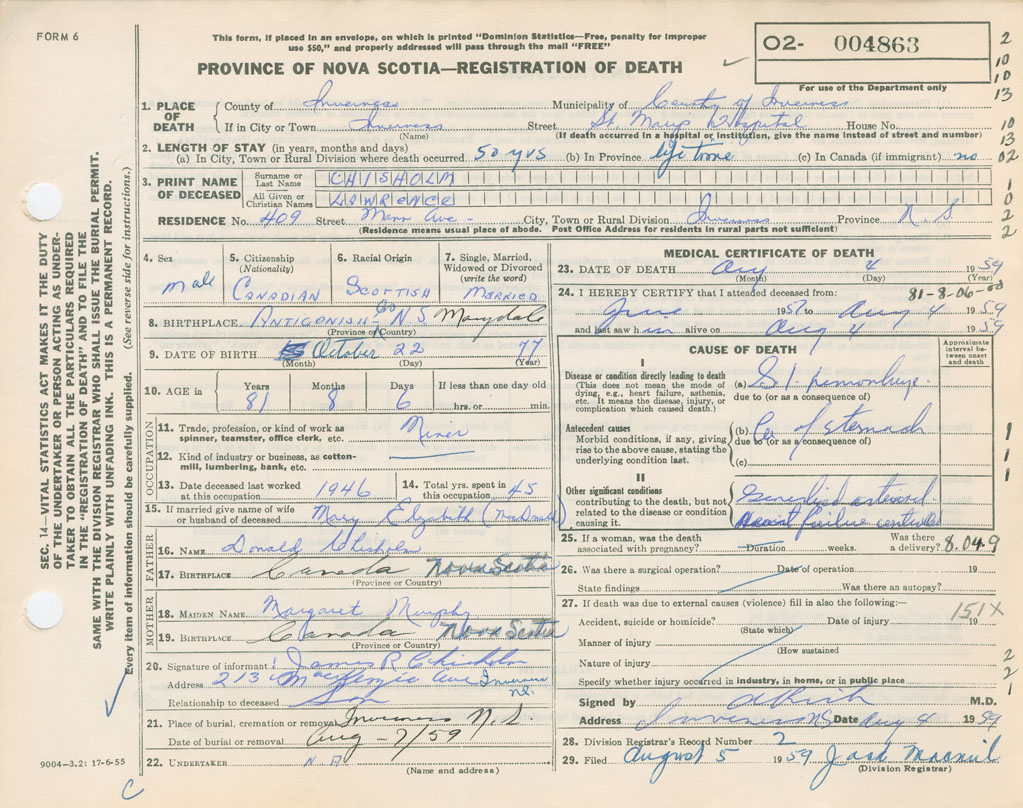 FORM 6
This form, if placed in an envelope, on which is printed "Dominion Statistics—Free, penalty for improper
use $50," and properly addressed will pass through the mail "FREE"
PROVINCE OF NOVA SCOTIA—REGISTRATION OF DEATH
02- 004863
For use of the Department only
2
10
10
13
10
13
02
1
0
2
2
1
1
1
2
2
1
SEC. 14—VITAL STATISTICS ACT MAKES IT THE DUTY
OF THE UNDERTAKER OR PERSON ACTING AS UNDER-
TAKER TO OBTAIN ALL THE PARTICULARS REQUIRED
IN THE "REGISTRATION OF DEATH" AND TO FILE THE
SAME WITH THE DIVISION REGISTRAR WHO SHALL ISSUE THE BURIAL PERMIT.
WRITE PLAINLY WITH UNFADING INK. THIS IS A PERMANENT RECORD.
Every item of information should be carefully supplied. (See reverse side for instructions.)
1. PLACE OF DEATH
County of Inverness Municipality of County of Inverness
If in City or Town Inverness Street St. Marys Hospital House No.
(Name) (If death occurred in a hospital or institution, give the name instead of street and number)
2. LENGTH OF STAY (in years, months and days)
(a) In City, Town or Rural Division where death occurred 50 yrs (b) In Province life time (c) In Canada (if immigrant) no
3. PRINT NAME OF DECEASED
Surname or Last Name CHISHOLM
All Given or Christian Names LAWRENCE
RESIDENCE No. 409 Street Ave - City, Town or Rural Division Inverness Province N.S
(Residence means usual place of abode. Post Office Address for residents in rural parts not sufficient)
4. Sex male
5. Citizenship (Nationality) CANADIAN
6. Racial Origin SCOTTISH
7. Single, Married, Widowed or Divorced (write the word) MARRIED
8. BIRTHPLACE ANTIGONISH Co NS Marydale
(Province or Country)
9. DATE OF BIRTH October 22 77
(Month) (Day) (Year)
10. AGE in Years 81 Months 8 Days 6 If less than one day old hrs. or min.
OCCUPATION
11. Trade, profession, or kind of work as spinner, teamster, office clerk, etc. Miner
12. Kind of industry or business, as cotton-mill, lumbering, bank, etc.
13. Date deceased last worked at this occupation 1946
14. Total yrs. spent in this occupation 45
15. If married give name of wife or husband of deceased Mary Elizabeth (MacDonald)
FATHER
16. NAME Donald Chisholm
17. BIRTHPLACE Canada Nova Scotia
(Province or Country)
MOTHER
18. MAIDEN NAME Margaret Murphy
19. BIRTHPLACE Canada Nova Scotia
(Province or Country)
20. Signature of informant James R Chisholm
Address 213 MacKenzie Ave Inverness N.S.
Relationship to deceased Son
21. Place of burial, cremation or removal Inverness N.S.
Date of burial or removal Aug - 7/59
22. UNDERTAKER
(Name and address)
9004—3.2: 17-6-55
MEDICAL CERTIFICATE OF DEATH
23. DATE OF DEATH Aug 4 1959
(Month) (Day) (Year)
24. I HEREBY CERTIFY that I attended deceased from: 81-8-06-00
June 1957 to Aug 4 1959
and last saw him alive on Aug 4 1959
CAUSE OF DEATH
Approximate interval between onset and death
I
Disease or condition directly leading to death
(This does not mean the mode of dying, e.g., heart failure, asthenia, etc. It means the disease, injury, or complication which caused death.)
(a) G.I. hemorrhage.
due to (or as a consequence of)
Antecedent causes
Morbid conditions, if any, giving rise to the above cause, stating the underlying condition last.
(b) Ca of stomach
due to (or as a consequence of)
(c)
II
Other significant conditions
contributing to the death, but not related to the disease or condition causing it.
failure
25. If a woman, was the death associated with pregnancy? Duration weeks. Was there a delivery? 8.04.9
26. Was there a surgical operation? Date of operation 19
State findings Was there an autopsy?
27. If death was due to external causes (violence) fill in also the following:—
Accident, suicide or homicide? Date of injury 19 151X
(State which)
Manner of injury
(How sustained
Nature of injury
Specify whether injury occurred in industry, in home, or in public place
Signed by M.D.
Address Inverness NS Date Aug 4 1959
28. Division Registrar's Record Number 2
29. Filed August 5 1959 Jack
(Division Registrar)